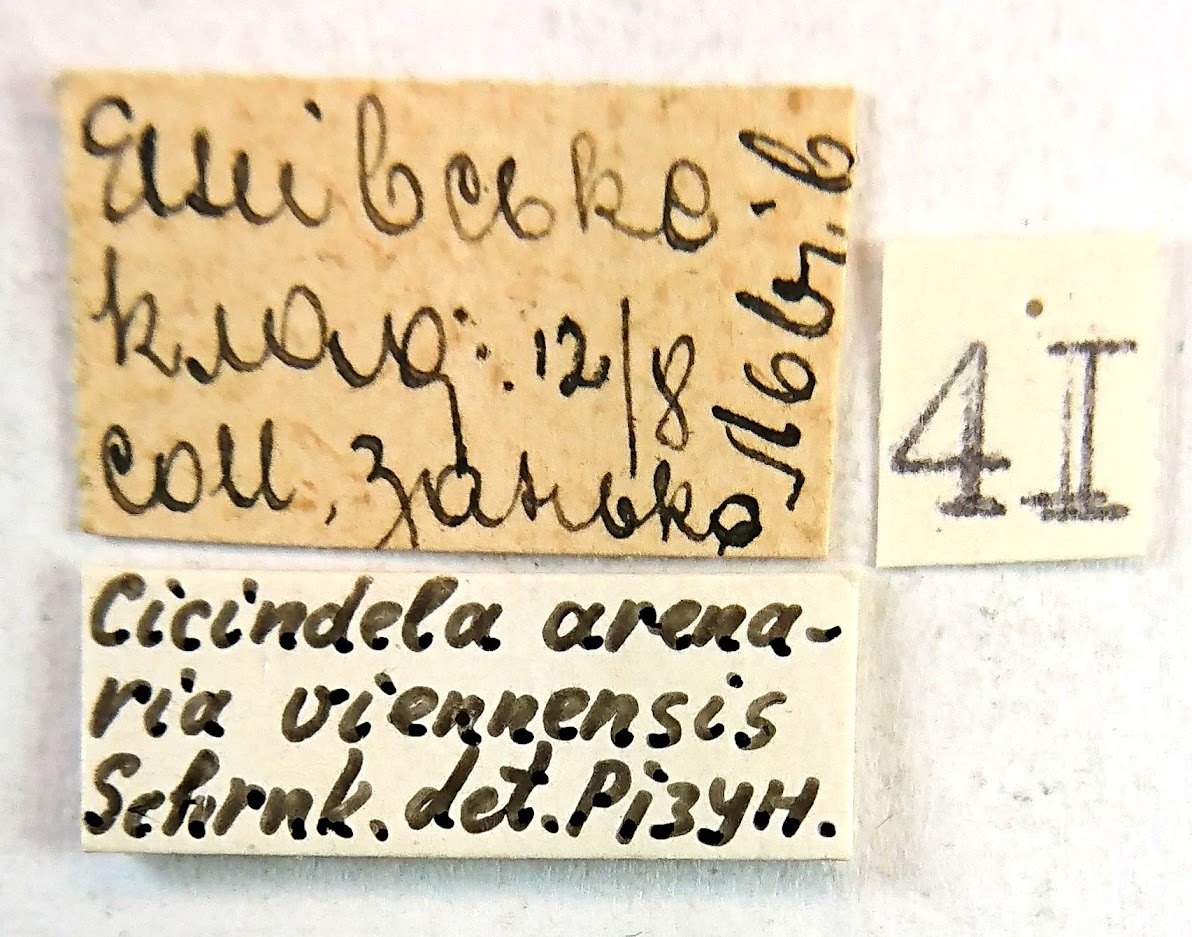 Янівське
клад: 12/8
coll. Затько
Львів
4I
Cicindela arena-
ria viennensis
Schrnk. det. Різун.